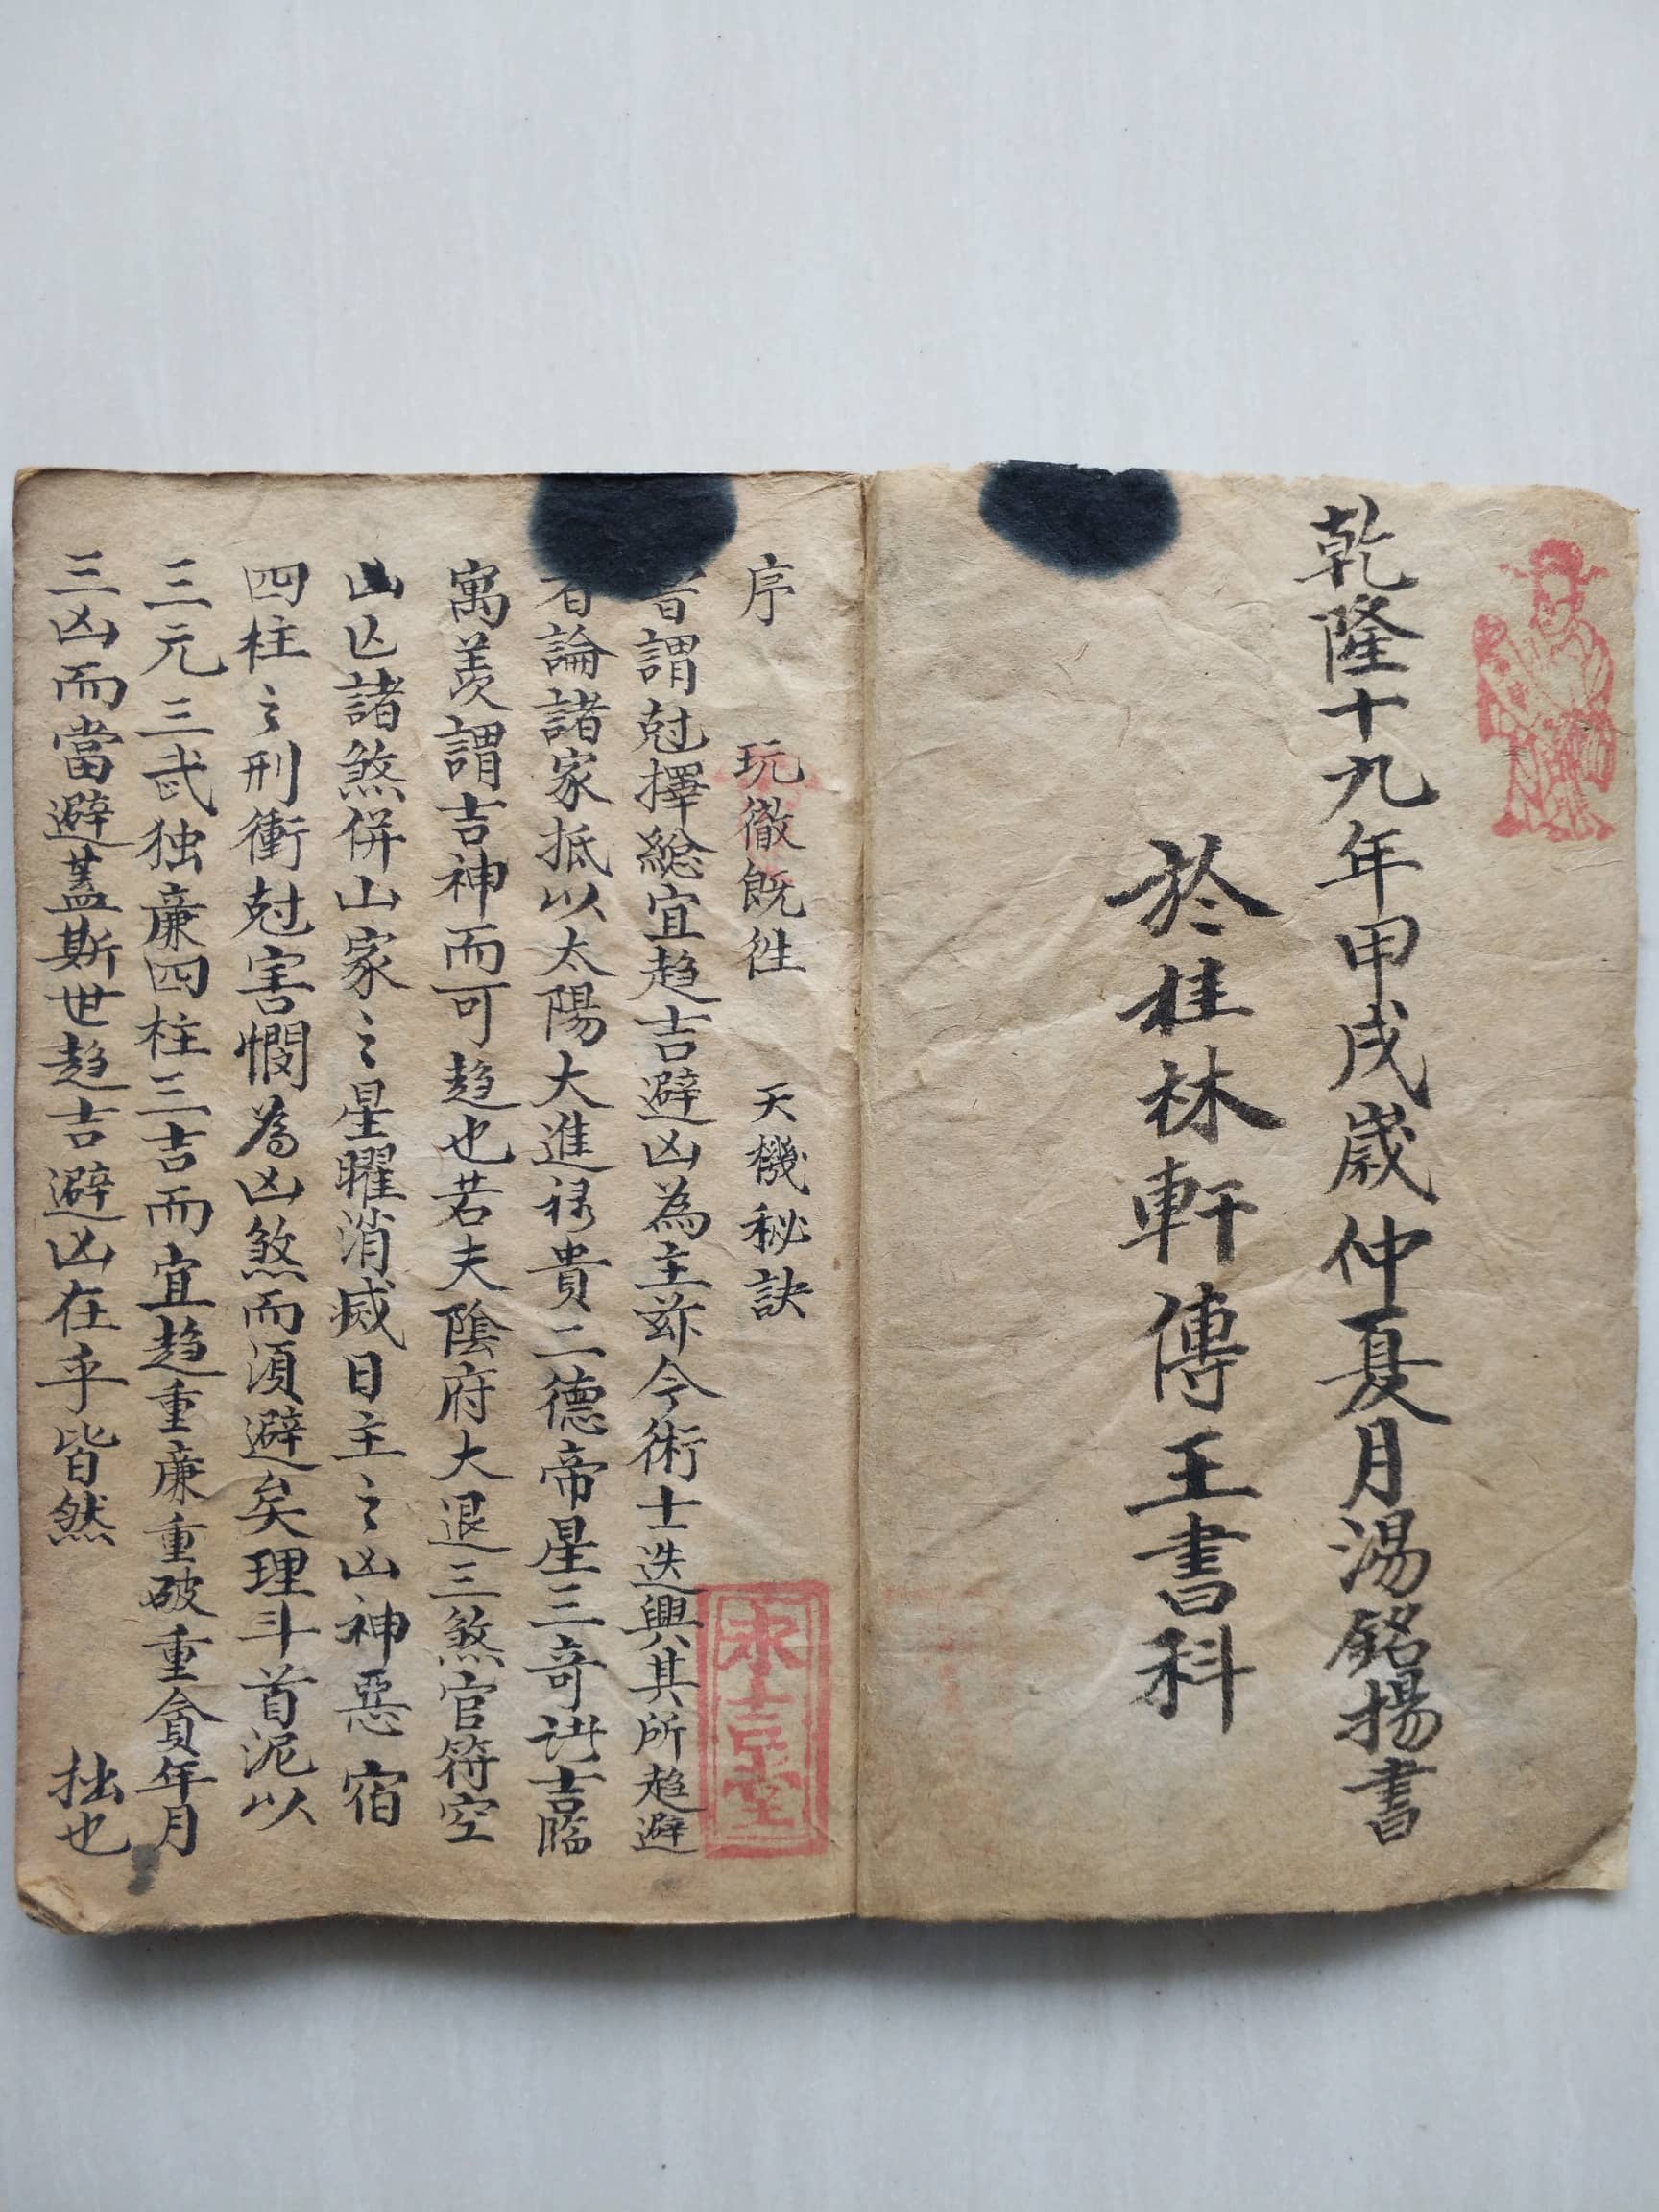 乾隆十九年甲戌歲仲夏月湯銘揚書
於桂林軒傳王書科
序 玩徹既徃 天機秘訣
謂尅擇總宜趋吉避凶為主茲今術士迭興其所趋避
者論諸家抵以太陽大進祿貴二德帝星三奇諸吉臨
寓羡謂吉神而可趋也若夫陰府大退三煞官符空
亡諸煞併山家之星曜消滅日主之凶神惡宿
四柱之刑衝尅害憫為凶煞而須避矣理斗首泥以
三元三武独廉四柱三吉而宜趋重廉重破重貪年月
三凶而當避蓋斯世趋吉避凶在乎皆然 拙也
永吉堂